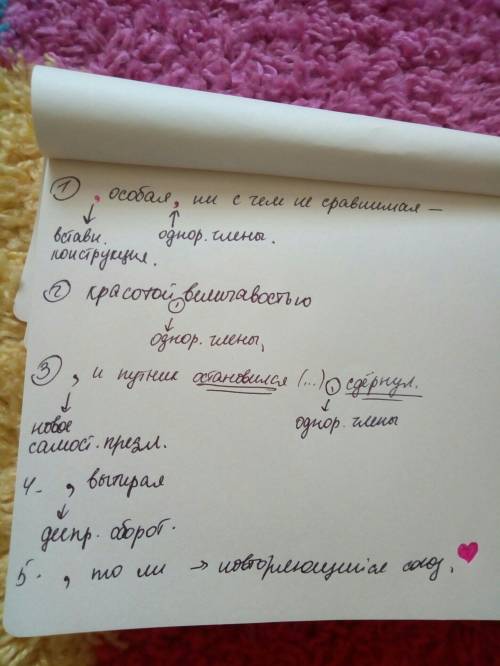 ① , особая, ни с чем не сравнимая —
вставн. однор. члены.
конструкция.
② красотой, величавостью
однор. члены,
③ , и путник остановился (...), сдёрнул.
новое однор. члены
самост. предл.
4- , вытирая
деепр. оборот.
5. , то ли → повторяющийся союз.